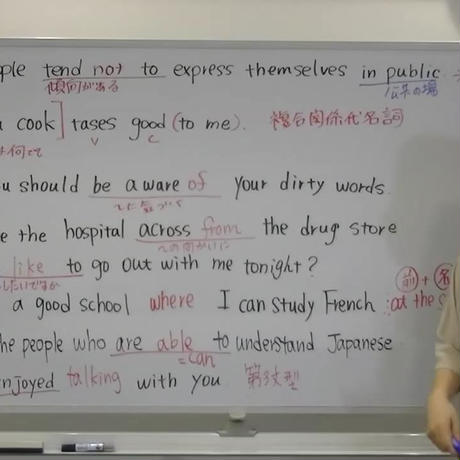 ple tend not to express themselves in public
傾向がある 公共の場
cook] tases good (to me). 複合関係代名詞
何でも V C
u should be aware of your dirty words.
〜に気づく
e the hospital across from the drug store
〜の向かいに
like to go out with me tonight?
したいですか 前 + 名
a good school where I can study French : at the s
he people who are able to understand Japanese
= can
njoyed talking with you 第3文型